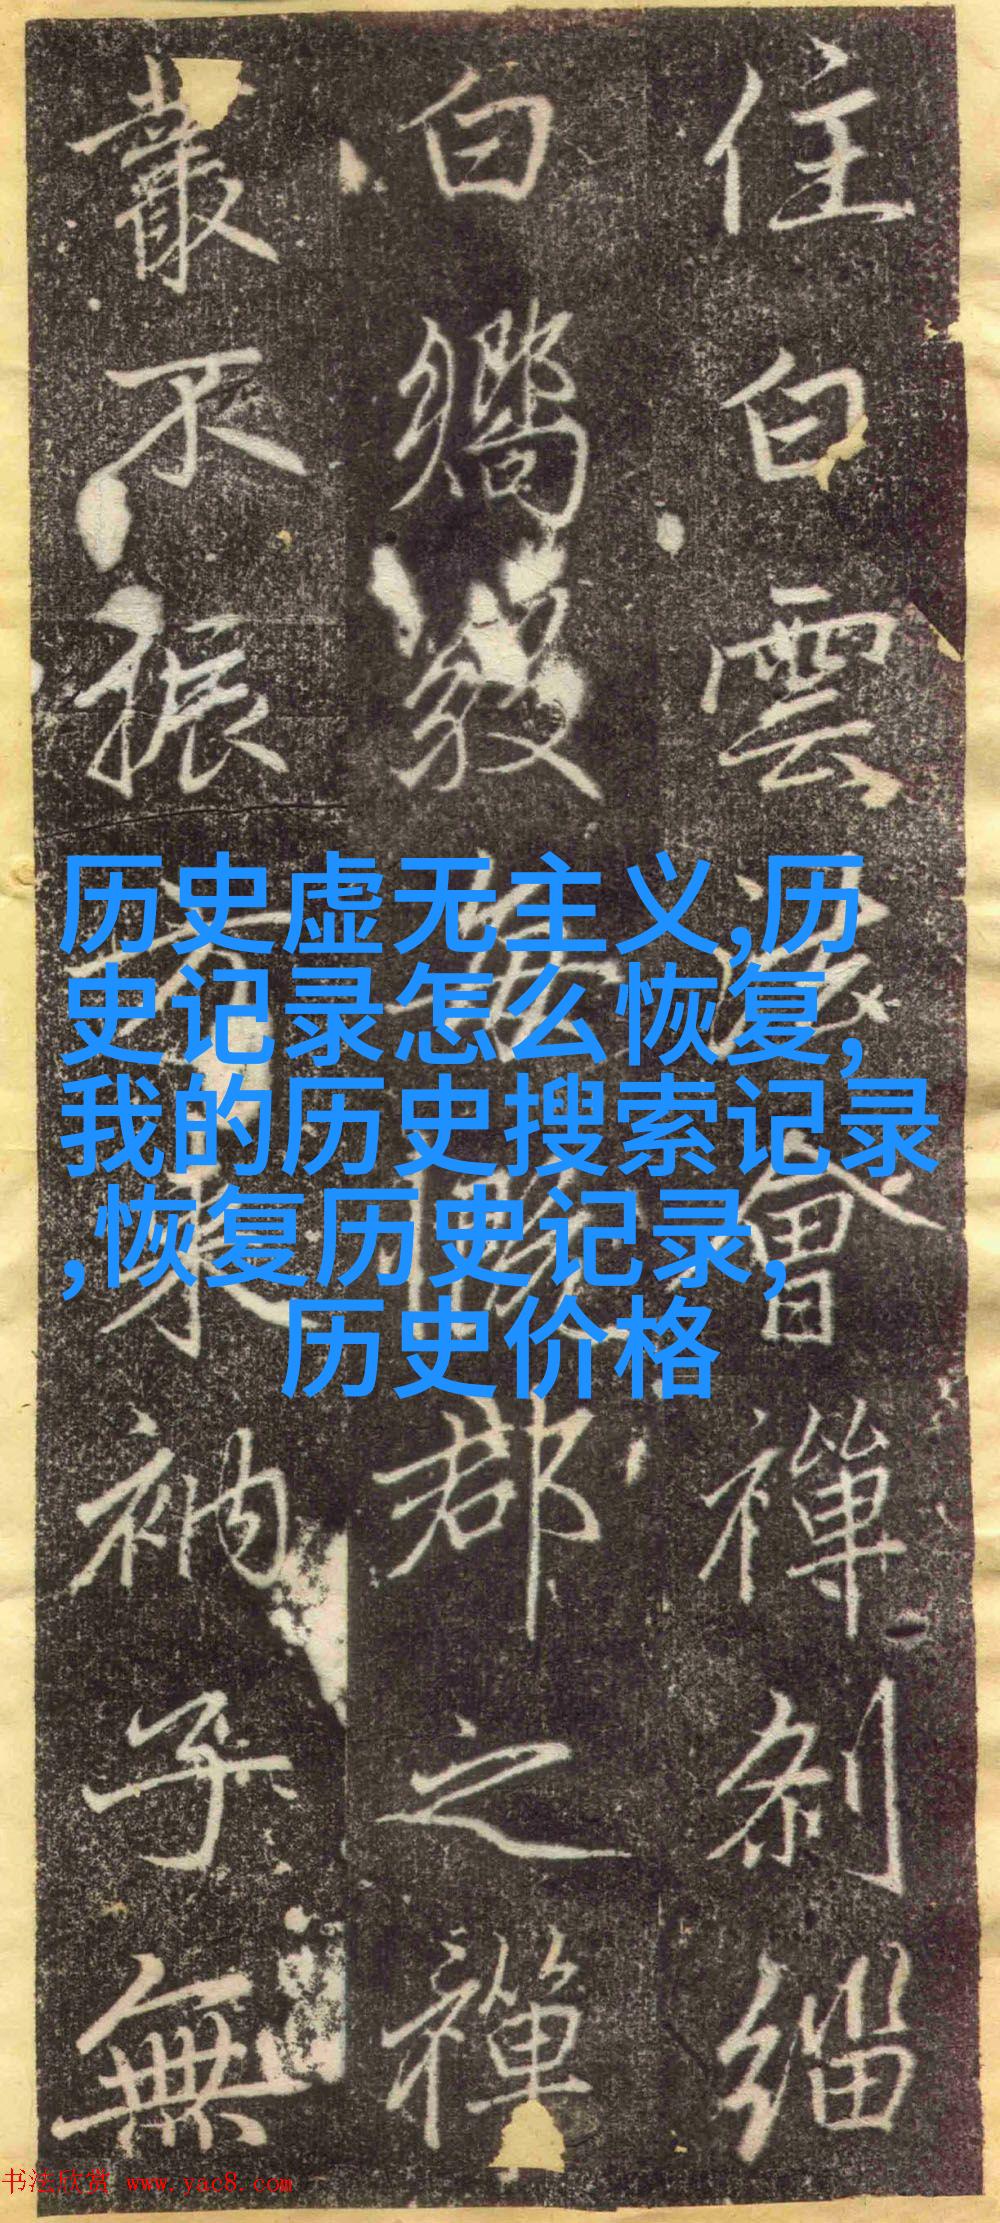 住白雲會禪剎緇
白郡之禪
叢不振方來衲子無
历史虚无主义,历
史记录怎么恢复,
我的历史搜索记录
,恢复历史记录,
历史价格
书法欣赏 www.yac8.com